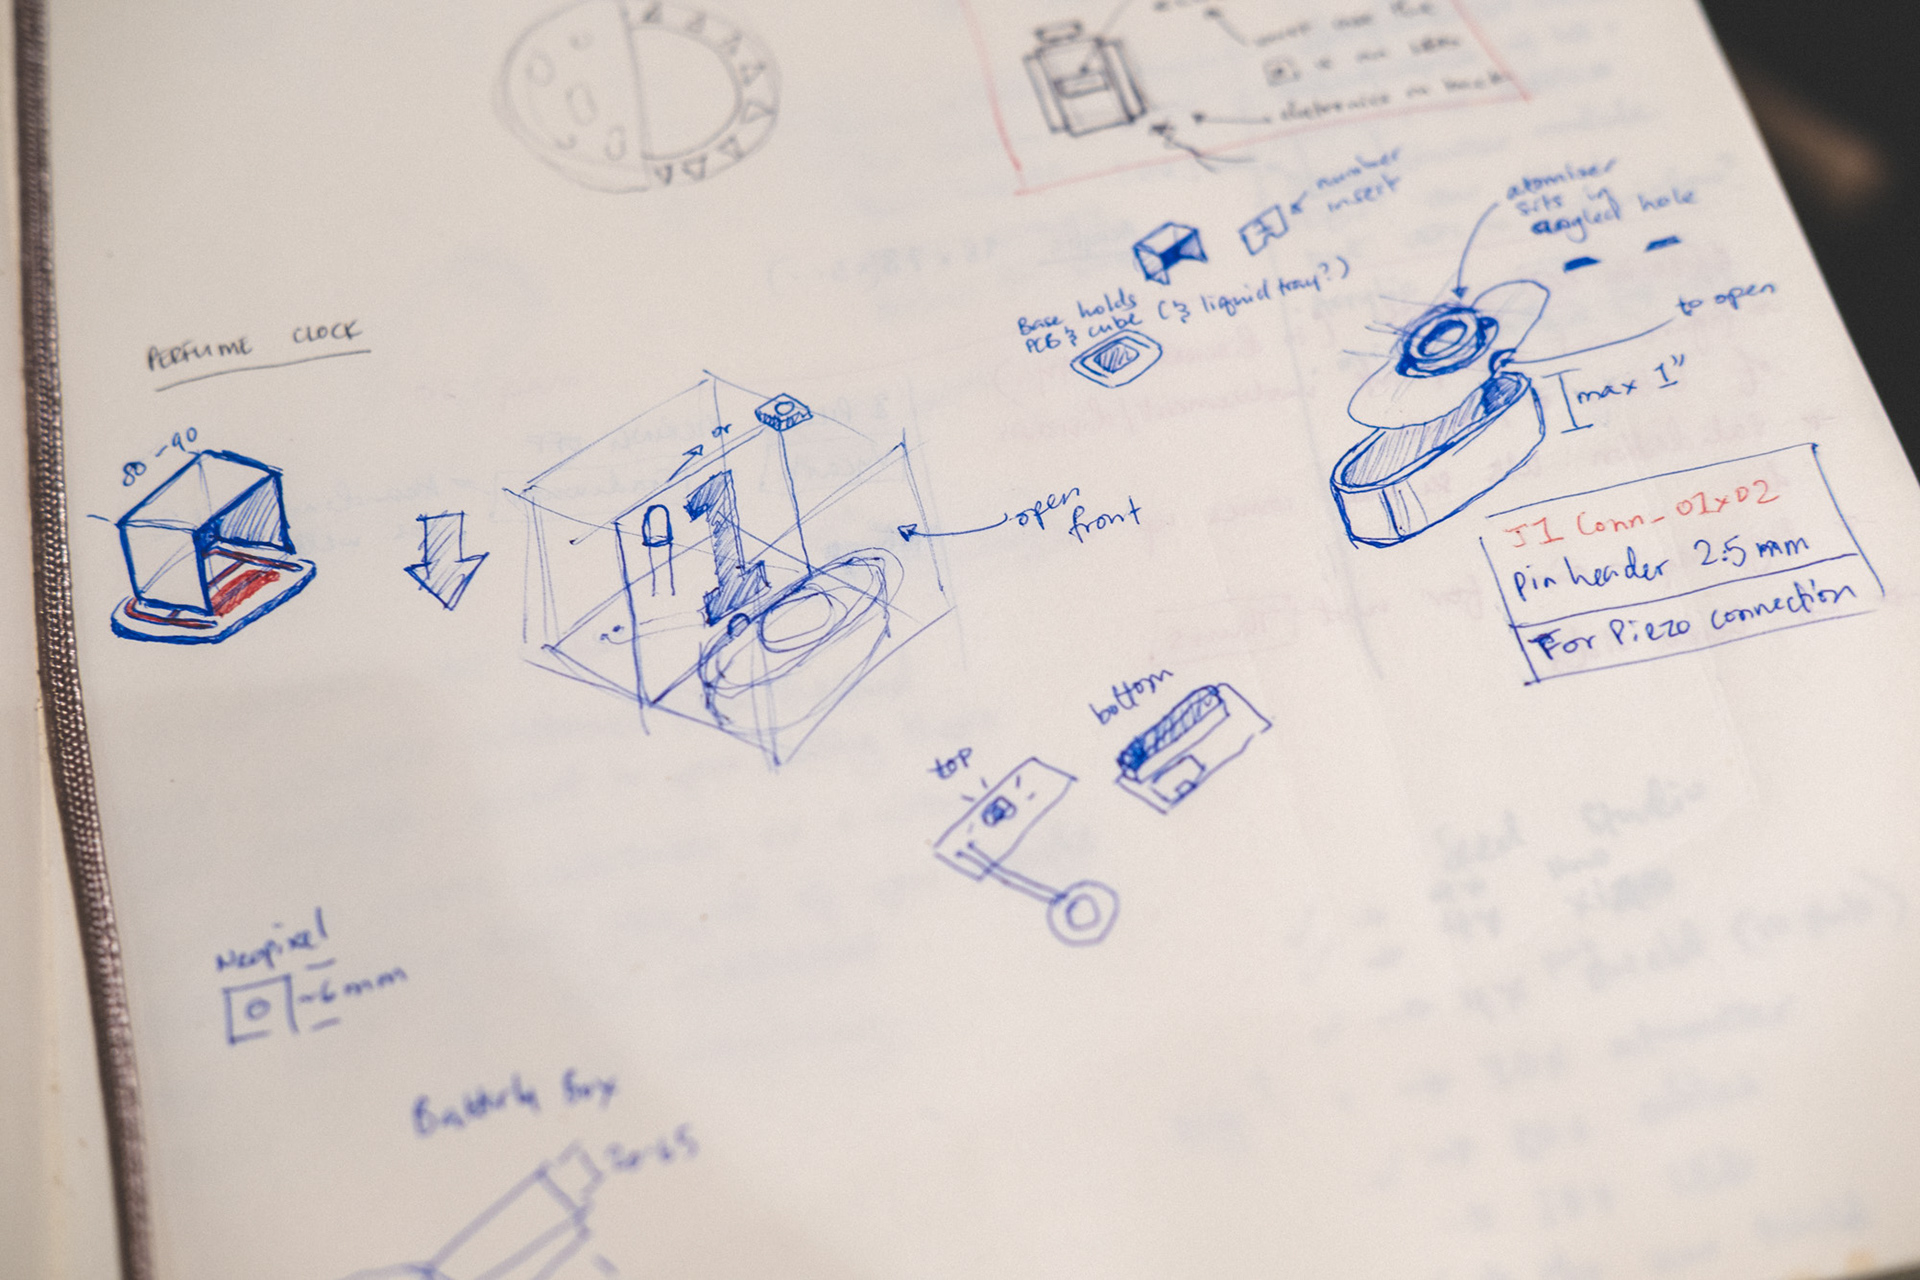 must use the
electronics on back
number
insert
atomiser
sits in
angled hole
Base holds
PCB & cube (& liquid tray?)
to open
PERFUME CLOCK
max 1"
80-90
or
1
open
front
J1 Conn_01x02
pin header 2.5mm
For Piezo connection
bottom
top
Neopixel
~6mm
Battery box